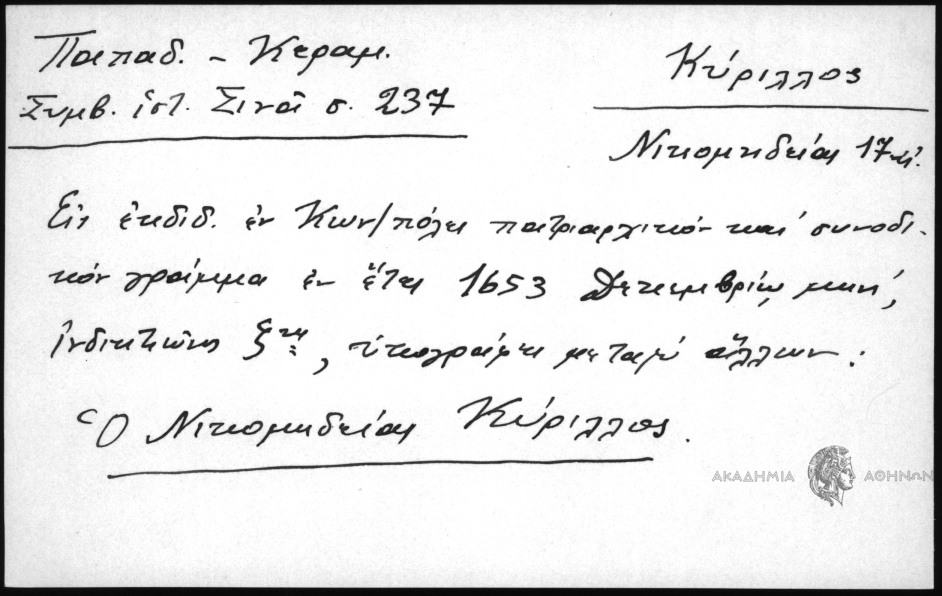 Παπαδ. - Κεραμ.
Συμβ. ἱστ. Σινᾶ σ. 237
Κύριλλος
Νικομηδείας 17 αἰ.
Εἰς ἐκδιδ. ἐν Κων/πόλει πατριαρχικόν καί συνοδι-
κόν γράμμα ἐν ἔτει 1653 Δεκεμβρίῳ μηνί,
ἰνδικτιῶνος ξτης, ὑπογράφει μεταξύ ἄλλων:
Ὁ Νικομηδείας Κύριλλος.
ΑΚΑΔΗΜΙΑ ΑΘΗΝΩΝ